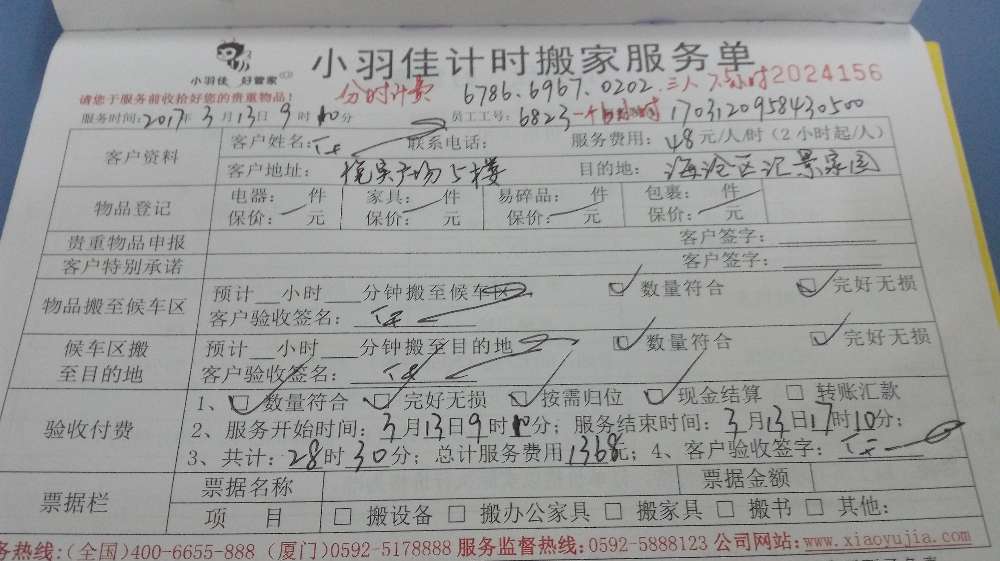 小羽佳 好管家
小羽佳计时搬家服务单
请您于服务前收拾好您的贵重物品!
分时计费 6786、6967、0202、三人 7.5小时 2024156
服务时间:2017年3月13日9时10分 员工工号:6823 一个6小时 1703120958430500
客户资料 客户姓名: 联系电话: 服务费用:48元/人/时(2小时起/人)
客户地址: 5楼 目的地:海沧区汇景家园
物品登记 电器: 件 家具: 件 易碎品: 件 包裹: 件
保价: 元 保价: 元 保价: 元 保价: 元
贵重物品申报 客户签字:
客户特别承诺 客户签字:
物品搬至候车区 预计__小时___分钟搬至候车区 ☑数量符合 ☑完好无损
客户验收签名:
候车区搬至目的地 预计__小时___分钟搬至目的地 ☑数量符合 ☑完好无损
客户验收签名:
验收付费 1、☑数量符合 ☑完好无损 ☑按需归位 ☑现金结算 □转账汇款
2、服务开始时间:3月13日9时10分;服务结束时间:3月13日17时10分;
3、共计:28时30分;总计服务费用1368元;4、客户验收签字:
票据栏 票据名称 票据金额
项 目 □搬设备 □搬办公家具 □搬家具 □搬书 □其他:
务热线:(全国)400-6655-888 (厦门)0592-5178888 服务监督热线:0592-5888123 公司网站:www.xiaoyujia.com